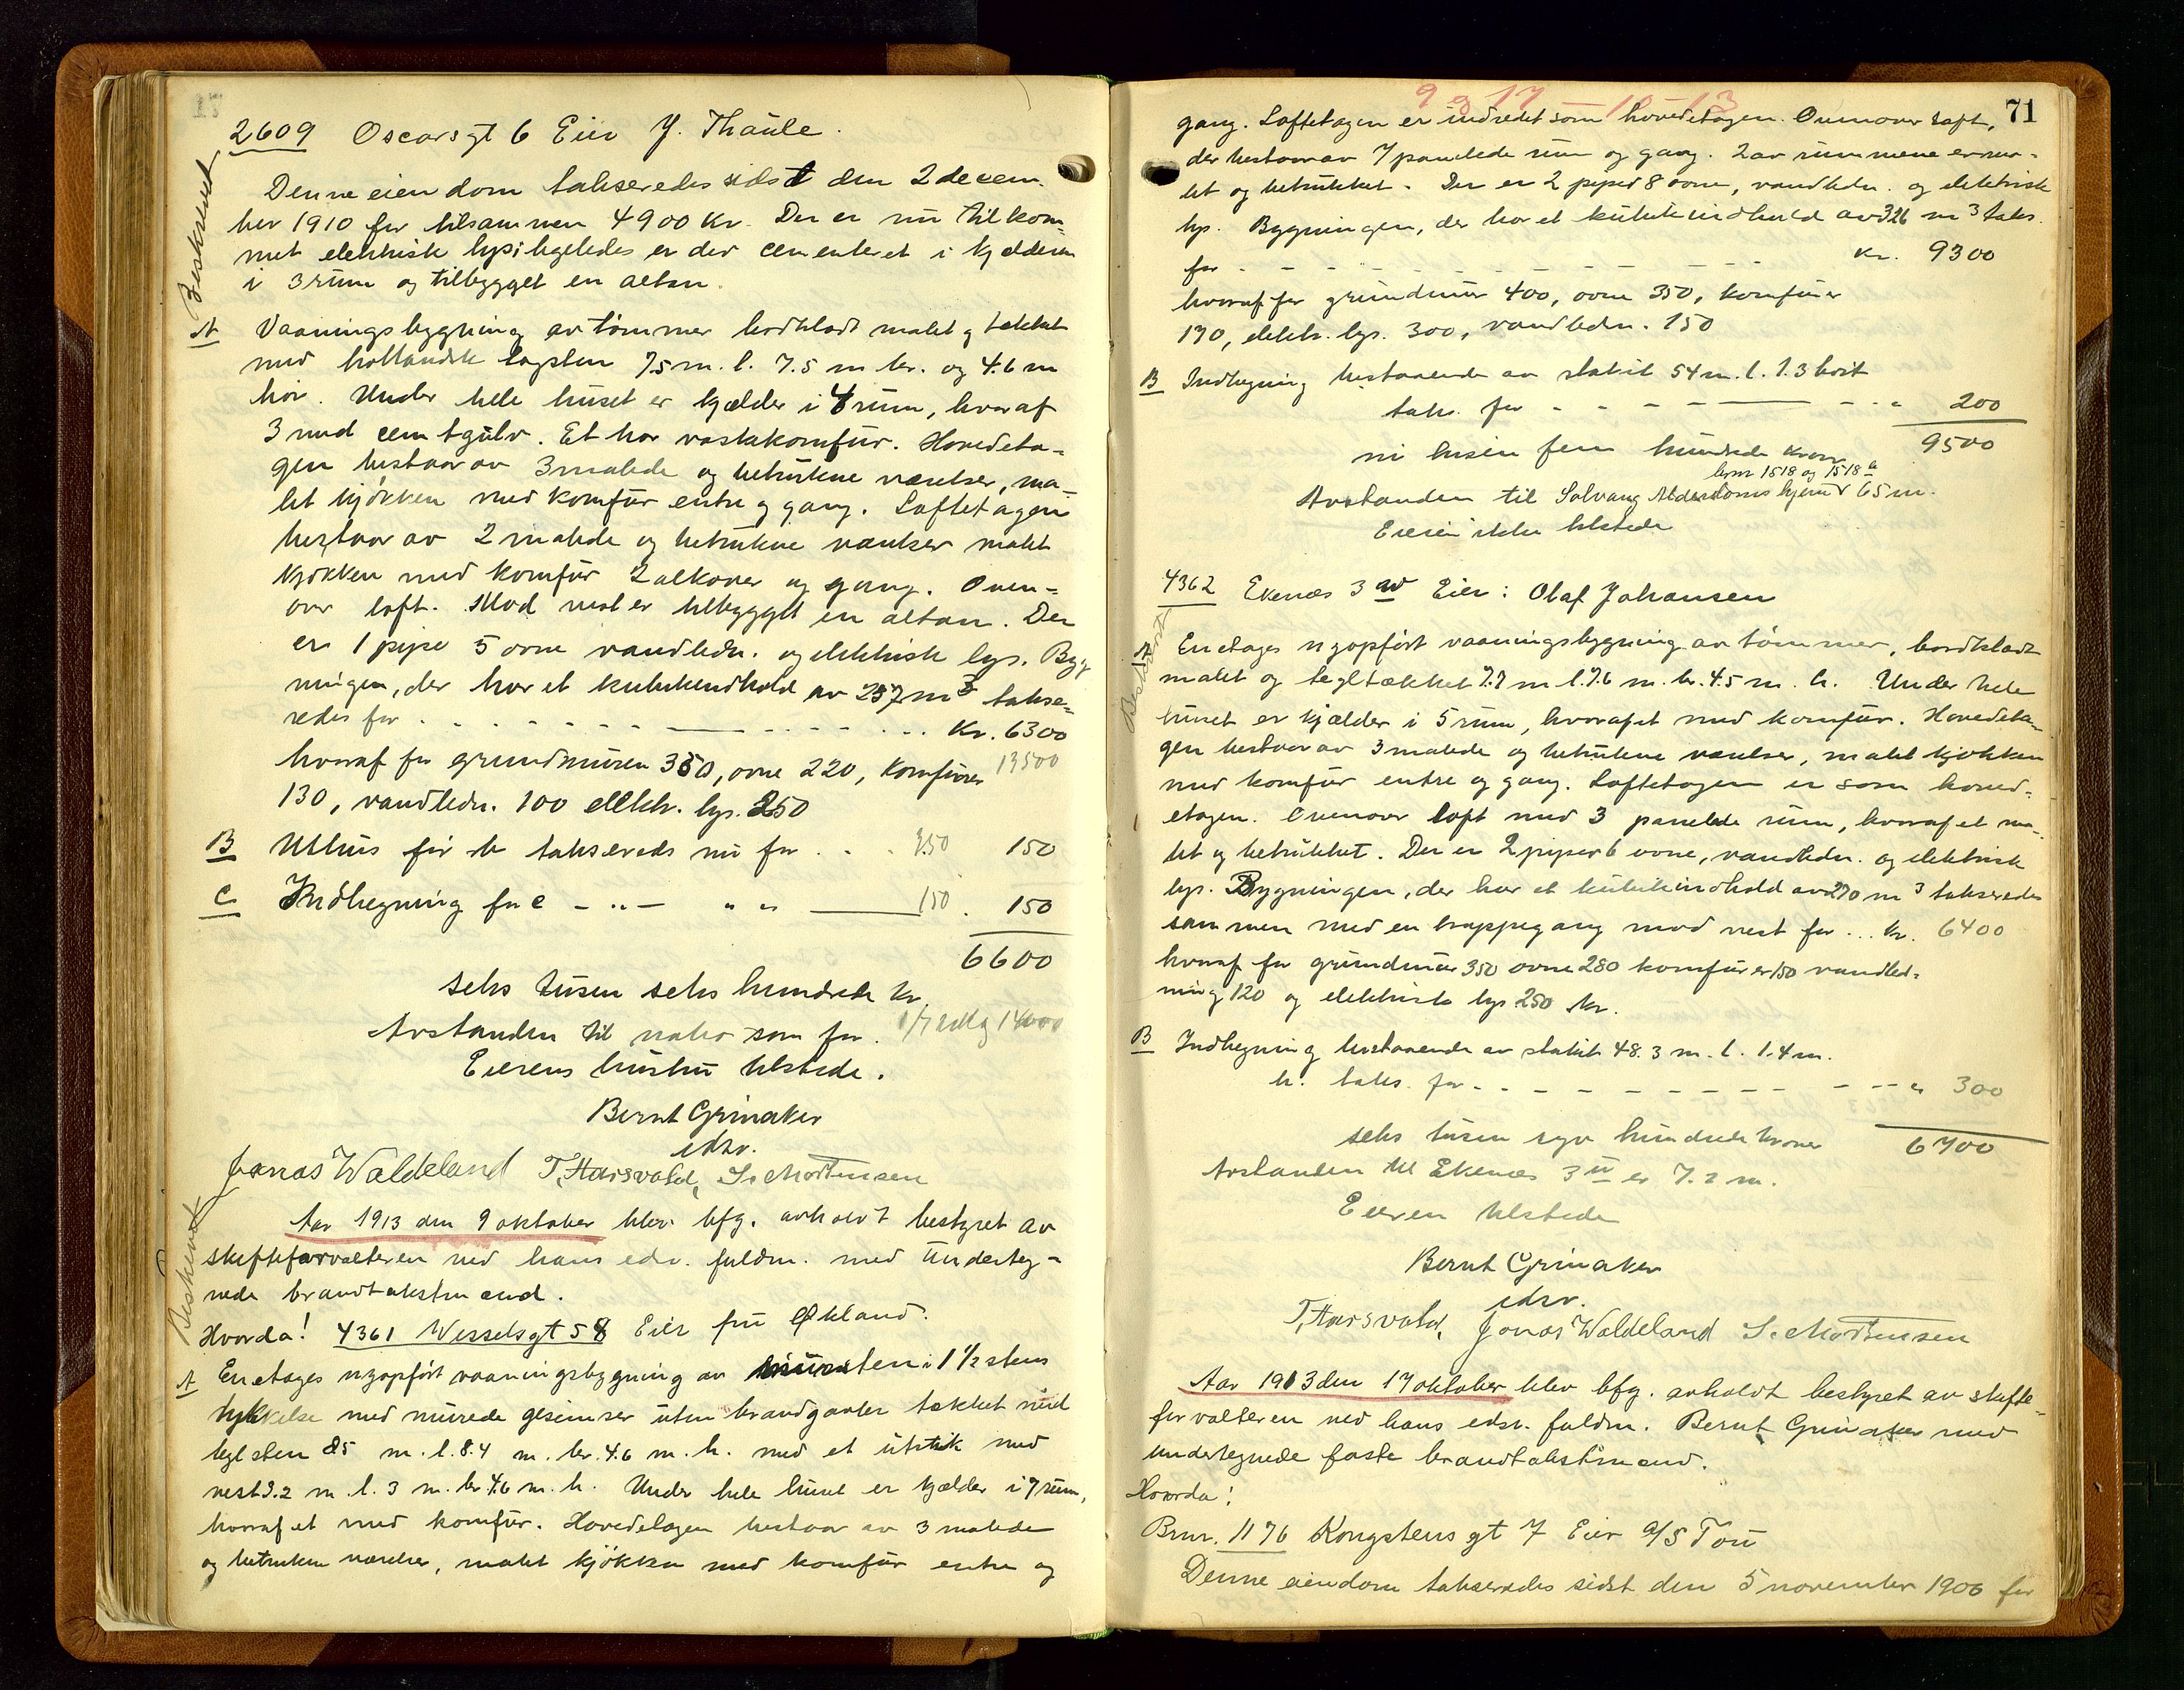 2609 Oscarsgt 6 Eier Y. Thaule.
Beskrevet
Denne eiendom takseredes sidst den 2 decem-
ber 1910 for tilsammen 4900 Kr. Der er nu tilkom-
met elektrisk lys; ligeledes er der cementeret i kjelderen
i 3 rum og tilbygget en altan.
A Vaaningsbygning av tømmer bordklædt malet og tækket
med hollandsk tagsten 7.5 m. l. 7.5 m br. og 4.6 m
høi. Under hele huset er kjælder i 4 rum, hvoraf
3 med cemtgulv. Et har vaskekomfur. Hovedeta-
gen bestaar av 3 malede og betrukne værelser, ma-
let kjøkken med komfur entre og gang. Loftetagen
bestaar av 2 malede og betrukne værelser malet
kjøkken med komfur 2 alkover og gang. Oven-
over loft. Mod vest er tilbygget en altan. Der
er 1 pipe 5 ovne vandledn. og elektrisk lys. Byg-
ningen, der har et kubikindhold av 257 m3 takse-
redes for . . . Kr. 6300
hvoraf for grundmuren 350, ovne 220, komfurer 13500
130, vandledn. 100 elektr. lys. 250
B Uthus før b takseredes nu for . . . 350 150
C Indhegning før c - " - " " 150. 150
6600
seks tusen seks hundrede kr.
Avstanden til nabo som før. 14000
Eierens hustru tilstede.
Bernt Grinaker
edsv.
Jonas Waldeland T. Haarsvold, S. Mortensen
Beskrevet
Aar 1913 den 9 oktober blev bfg. avholdt bestyret av
skifteforvalteren ved hans edsv. fuldm. med underteg-
nede brandtakstmænd.
Hvorda! 4361 Wesselsgt 58 Eier fru Økland.
A Enetages nyopført vaaningsbygning av mursten i 1 1/2 stens
tykkelse med murede gesimser uten brandgavler tækket med
teglsten 8.5 m. l. 8.4 m. br. 4.6 m. h. med et utstik mod
vest 3.2 m. l. 3 m. br 4.6 m. h. Under hele huset er kjælder i 7 rum,
hvoraf et med komfur. Hovedetagen bestaar av 3 malede
og betrukne værelser, malet kjøkken med komfur entre og
71
gang. Loftetagen er indredet som hovedetagen. Ovenover loft,
der bestaar av 7 panelede rum og gang. 2 av rummene er ma-
let og betrukket. Der er 2 piper 8 ovne, vandledn. og elektrisk
lys. Bygningen, der har et kubikindhold av 326 m3 taks.
for - - - Kr. 9300
hvoraf for grundmur 400, ovne 350, komfurer
170, elektr. lys. 300, vandledn. 150
B Indhegning bestaaende av stakit 54 m. l. 1.3 høit
taks. for - - - " 200
ni tusen fem hundrede kroner 9500
brnr 1518 og 1518 a
Avstanden til Solvang Alderdomshjem 65 m.
Eieren ikke tilstede
4362 Ekenæs 3 av Eier: Olaf Johansen
Beskrevet
A Enetages nyopført vaaningsbygning av tømmer, bordklædt
malet og tegltækket 7.7 m l. 7.6 m. br. 4.5 m. h. Under hele
huset er kjælder i 5 rum, hvoraf et med komfur. Hovedeta-
gen bestaar av 3 malede og betrukne værelser, malet kjøkken
med komfur entre og gang. Loftetagen er som hoved-
etagen. Ovenover loft med 3 panelede rum, hvoraf et ma-
let og betrukket. Der er 2 piper 6 ovne, vandledn. og elektrisk
lys. Bygningen, der har et kubikindhold av 270 m3 takseredes
sammen med en trappegang mod vest for ... kr. 6400
hvoraf for grundmur 350 ovne 280 komfurer 150 vandled-
ning 120 og elektrisk lys 250 kr.
B Indhegning bestaaende av stakit 48.3 m. l. 1.4 m.
h. taks. for - - - " 300
seks tusen syv hundrede kroner 6700
Avstanden til Ekenæs 3 II er 7.2 m.
Eieren tilstede
Bernt Grinaker
edsv.
T. Haarsvold, Jonas Waldeland S. Mortensen
Aar 1913 den 17 oktober blev bfg. avholdt bestyret av skifte-
forvalteren ved hans edsv. fuldm. Bernt Grinaker med
undertegnede faste brandtakstmænd.
Hvorda!
Brnr. 1176 Kongstensgt 7 Eier A/S Tou
Denne eiendom takseredes sidst den 5 november 1906 for